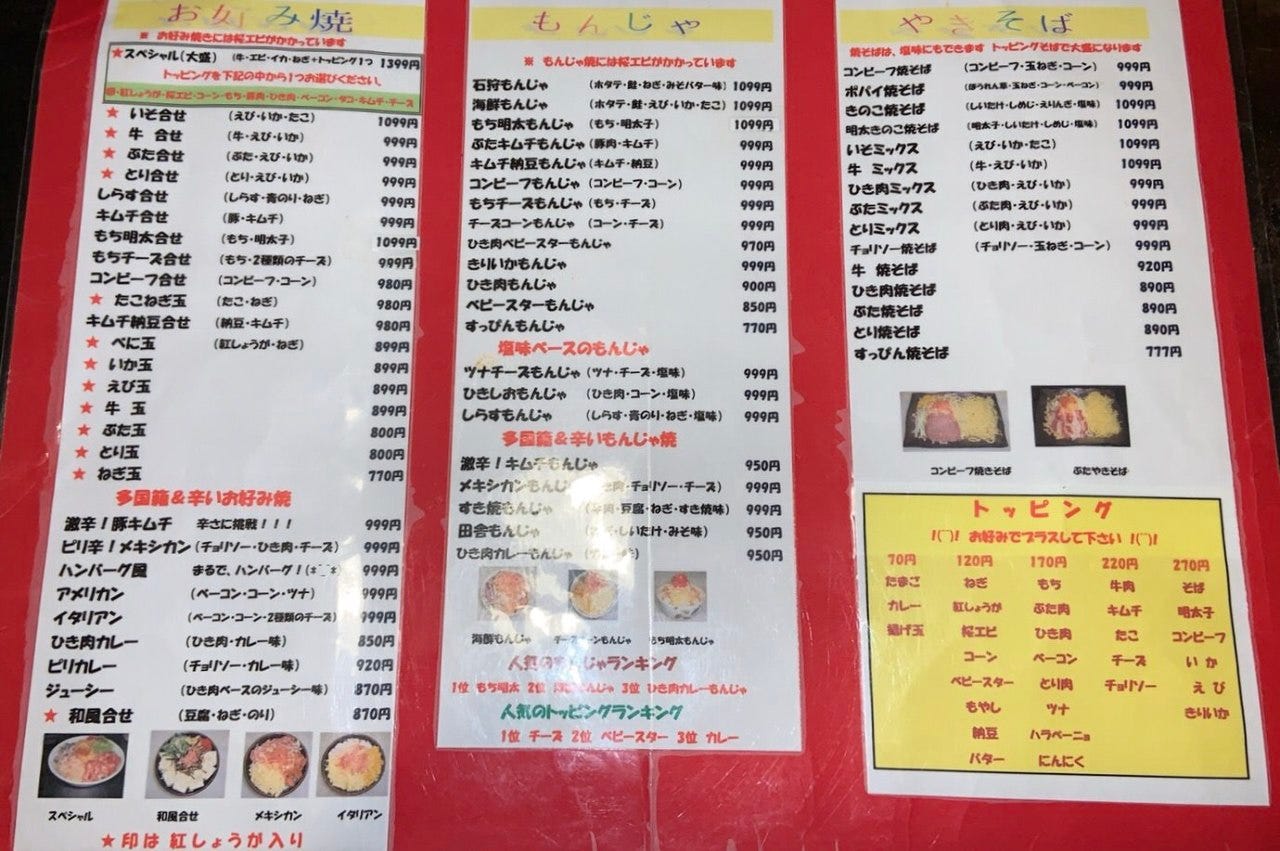 お好み焼
※ お好み焼きには桜エビがかかっています
★スペシャル(大盛) (牛・エビ・イカ・ねぎ+トッピング1つ 1399円
トッピングを下記の中から1つお選びください。
卵・紅しょうが・桜エビ・コーン・もち・豚肉・ひき肉・ベーコン・タコ・キムチ・チーズ
★ いそ合せ (えび・いか・たこ) 1099円
★ 牛 合せ (牛・えび・いか) 999円
★ ぶた合せ (ぶた・えび・いか) 999円
★ とり合せ (とり・えび・いか) 999円
しらす合せ (しらす・青のり・ねぎ) 999円
キムチ合せ (豚・キムチ) 999円
もち明太合せ (もち・明太子) 1099円
もちチーズ合せ (もち・2種類のチーズ) 999円
コンビーフ合せ (コンビーフ・コーン) 980円
★ たこねぎ玉 (たこ・ねぎ) 980円
キムチ納豆合せ (納豆・キムチ) 980円
★ べに玉 (紅しょうが・ねぎ) 899円
★ いか玉 899円
★ えび玉 899円
★ 牛 玉 899円
★ ぶた玉 800円
★ とり玉 800円
★ ねぎ玉 770円
多国籍&辛いお好み焼
激辛!豚キムチ 辛さに挑戦!!! 999円
ピリ辛!メキシカン (チョリソー・ひき肉・チーズ) 999円
ハンバーグ風 まるで、ハンバーグ!(*^_^*) 999円
アメリカン (ベーコン・コーン・ツナ) 999円
イタリアン (ベーコン・コーン・2種類のチーズ) 999円
ひき肉カレー (ひき肉・カレー味) 850円
ピリカレー (チョリソー・カレー味) 920円
ジューシー (ひき肉ベースのジューシー味) 870円
★ 和風合せ (豆腐・ねぎ・のり) 870円
スペシャル 和風合せ メキシカン イタリアン
★印は 紅しょうが入り
もんじゃ
※ もんじゃ焼には桜エビがかかっています
石狩もんじゃ (ホタテ・鮭・ねぎ・みそバター味) 1099円
海鮮もんじゃ (ホタテ・鮭・えび・いか・たこ) 1099円
もち明太もんじゃ (もち・明太子) 1099円
ぶたキムチもんじゃ (豚肉・キムチ) 999円
キムチ納豆もんじゃ (キムチ・納豆) 999円
コンビーフもんじゃ (コンビーフ・コーン) 999円
もちチーズもんじゃ (もち・チーズ) 999円
チーズコーンもんじゃ (コーン・チーズ) 999円
ひき肉ベビースターもんじゃ 970円
きりいかもんじゃ 999円
ひき肉もんじゃ 900円
ベビースターもんじゃ 850円
すっぴんもんじゃ 770円
塩味ベースのもんじゃ
ツナチーズもんじゃ (ツナ・チーズ・塩味) 999円
ひきしおもんじゃ (ひき肉・コーン・塩味) 999円
しらすもんじゃ (しらす・青のり・ねぎ・塩味) 999円
多国籍&辛いもんじゃ焼
激辛!キムチもんじゃ 950円
メキシカンもんじゃ き肉・チョリソー・チーズ) 999円
すき焼もんじゃ 肉・豆腐・ねぎ・すき焼味) 999円
田舎もんじゃ ・しいたけ・みそ味) 950円
ひき肉カレーもんじゃ 950円
海鮮もんじゃ チーズコーンもんじゃ もち明太もんじゃ
人気のもんじゃランキング
1位 もち明太 2位 もんじゃ 3位 ひき肉カレーもんじゃ
人気のトッピングランキング
1位 チーズ 2位 ベビースター 3位 カレー
やきそば
焼そばは、塩味にもできます トッピングそばで大盛になります
コンビーフ焼そば (コンビーフ・玉ねぎ・コーン) 999円
ポパイ焼そば (ほうれん草・玉ねぎ・コーン・ベーコン) 999円
きのこ焼そば (しいたけ・しめじ・えりんぎ・塩味) 1099円
明太きのこ焼そば (明太子・しいたけ・しめじ・塩味) 1099円
いそミックス (えび・いか・たこ) 1099円
牛 ミックス (牛・えび・いか) 1099円
ひき肉ミックス (ひき肉・えび・いか) 999円
ぶたミックス (ぶた肉・えび・いか) 999円
とりミックス (とり肉・えび・いか) 999円
チョリソー焼そば (チョリソー・玉ねぎ・コーン) 999円
牛 焼そば 920円
ひき肉焼そば 890円
ぶた焼そば 890円
とり焼そば 890円
すっぴん焼そば 777円
コンビーフ焼きそば ぶたやきそば
トッピング
!(^)! お好みでプラスして下さい !(^)!
70円 120円 170円 220円 270円
たまご ねぎ もち 牛肉 そば
カレー 紅しょうが ぶた肉 キムチ 明太子
揚げ玉 桜エビ ひき肉 たこ コンビーフ
コーン ベーコン チーズ いか
ベビースター とり肉 チョリソー えび
もやし ツナ きりいか
納豆 ハラペーニョ
バター にんにく